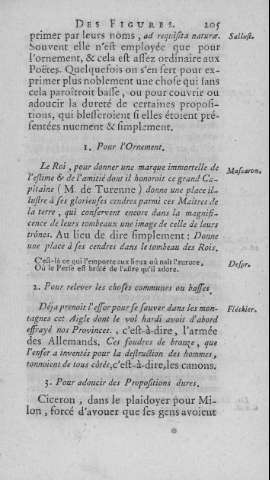 DES FIGURES. 205
primer par leurs noms, ad requisita naturæ. Sallust.
Souvent elle n'est employée que pour
l'ornement, & cela est assez ordinaire aux
Poëtes. Quelquefois on s'en sert pour ex-
primer plus noblement une chose qui sans
cela paroîtroit basse, ou pour couvrir ou
adoucir la dureté de certaines proposi-
tions, qui blesseroient si elles étoient pré-
sentées nuement & simplement.
1. Pour l'Ornement.
Le Roi, pour donner une marque immortelle de
l'estime & de l'amitié dont il honoroit ce grand Ca- Mascaron.
pitaine (M. de Turenne) donne une place il-
lustre à ses glorieuses cendres parmi ces Maîtres de
la terre, qui conservent encore dans la magnifi-
cence de leurs tombeaux une image de celle de leurs
trônes. Au lieu de dire simplement : Donne
une place à ses cendres dans le tombeau des Rois.
C'est-là ce qui l'emporte aux lieux où naît l'aurore,
Où le Perse est brûlé de l'astre qu'il adore. Despr.
2. Pour relever les choses communes ou basses.
Déja prenoit l'essor pour se sauver dans les mon- Fléchier.
tagnes cet Aigle dont le vol hardi avoit d'abord
effrayé nos Provinces, c'est-à-dire, l'armée
des Allemands. Ces foudres de bronze, que
l'enfer a inventés pour la destruction des hommes,
tonnoient de tous côtés, c'est-à-dire, les canons.
3. Pour adoucir des Propositions dures.
Ciceron, dans le plaidoyer pour Mi-
lon, forcé d'avouer que ses gens avoient